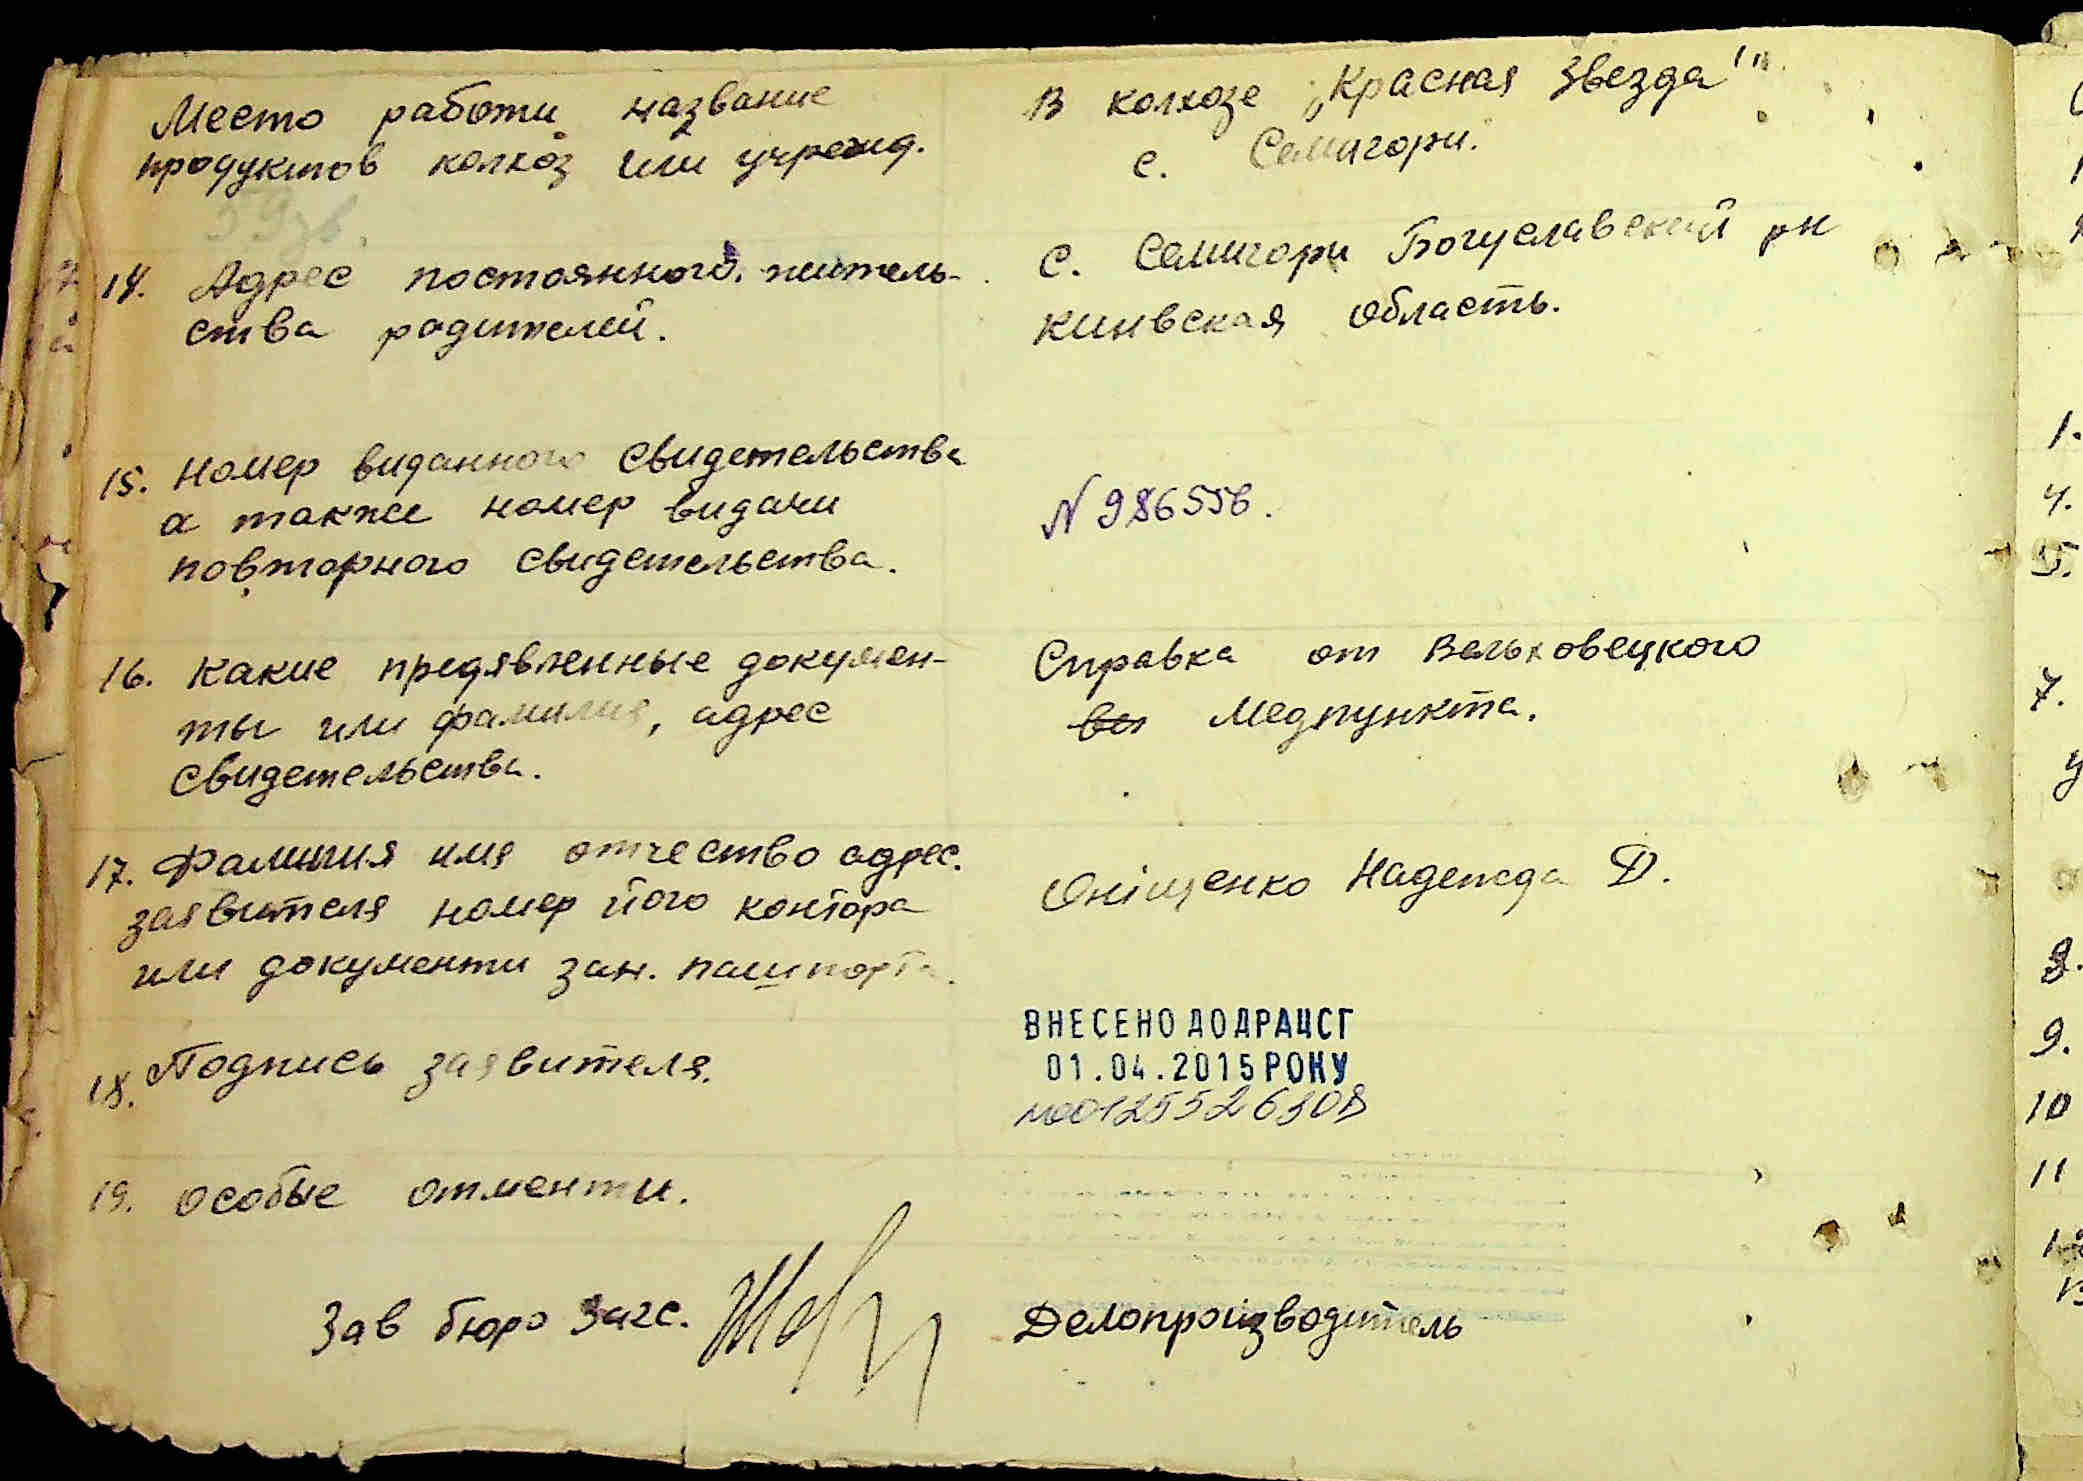 Место работи название
продуктов колхоз или учрежд.
В колхозе „Красная Звезда"
с. Семигори.
14. Адрес постоянного житель-
ства родителей.
с. Семигори Богуславский рн
Киивская область.
15. Номер виданного свидетельства
а также номер видачи
повторного свидетельства.
N 986556.
16. Какие предявленные докумен-
ты или фамилия, адрес
свидетельства.
Справка от Вольховецкого
Медпункта.
17. Фамилия имя отчество адрес.
заявителя номер його контора
или документи зан. пашпорта.
Оніщенко Надежда Д.
18. Подпись заявителя.
ВНЕСЕНО ДО ДРАЦСГ
01.04.2015 РОКУ
19. Особые отменти.
Зав бюро Загс.
Делопроізводитель
1.
4.
5.
7.
8.
9.
10
11